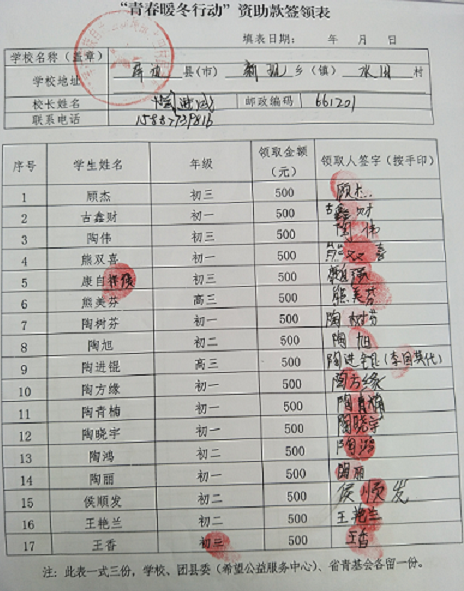 “青春暖冬行动”资助款签领表
填表日期： 年 月 日
学校名称（盖章）
学校地址 屏边 县（市） 新现 乡（镇） 村
校长姓名 邮政编码 661201
联系电话
序号 学生姓名 年级 领取金额（元） 领取人签字（按手印）
1 顾杰 初三 500 顾杰
2 古鑫财 初一 500 古鑫财
3 陶伟 初三 500 陶伟
4 熊双喜 初一 500 熊双喜
5 康自 初三 500
6 熊美芬 高三 500 熊美芬
7 陶树芬 初一 500 陶树芬
8 陶旭 初二 500 陶旭
9 陶进锟 高三 500 陶进锟
10 陶方缘 初一 500 陶方缘
11 陶青楠 初一 500 陶青楠
12 陶晓宇 初一 500 陶晓宇
13 陶鸿 初二 500 陶鸿
14 陶丽 初一 500 陶丽
15 侯顺发 初二 500 侯顺发
16 王艳兰 初二 500 王艳兰
17 王香 初三 500 王香
注：此表一式三份，学校、团县委（希望公益服务中心）、省青基会各留一份。